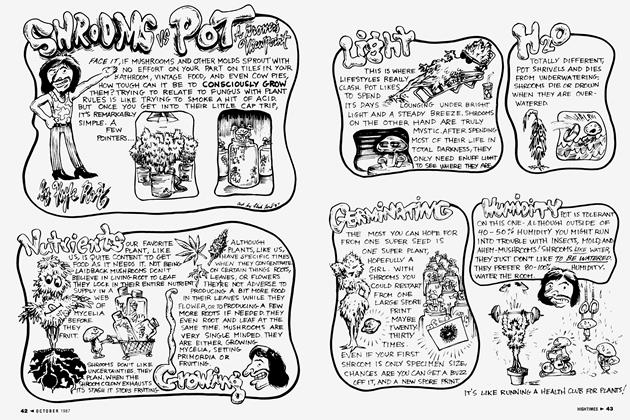 SHROOMS vs POT
A Grower's
Viewpoint
FACE IT, IF MUSHROOMS AND OTHER MOLDS SPROUT WITH
NO EFFORT ON YOUR PART ON TILES IN YOUR
BATHROOM, VINTAGE FOOD, AND EVEN COW PIES,
HOW TOUGH CAN IT BE TO CONSCIOUSLY GROW
THEM? TRYING TO RELATE TO FUNGUS WITH PLANT
RULES IS LIKE TRYING TO SMOKE A HIT OF ACID.
BUT ONCE YOU GET INTO THEIR LITTLE CAP TRIP,
IT'S REMARKABLY
SIMPLE. A
FEW
POINTERS...
Nutrients
OUR FAVORITE
PLANT, LIKE
US, IS QUITE CONTENT TO GET
FOOD AS IT NEEDS IT. NOT BEING
LAIDBACK MUSHROOMS DON'T
BELIEVE IN LIVING ROOT TO LEAF
THEY LOCK IN THEIR ENTIRE NUTRIENT
SUPPLY IN A
WEB
OF
MYCELIA
BEFORE
THEY
FRUIT.
SHROOMS DON'T LIKE
UNCERTAINTIES. THEY
PLAN. WHEN THE
SHROOM COLONY EXHAUSTS
ITS STASH IT STOPS FRUITING.
ALTHOUGH
PLANTS, LIKE US,
HAVE SPECIFIC TIMES
WHEN THEY CONCENTRATE
ON CERTAIN THINGS ROOTS,
LEAVES, OR FLOWERS
THEY'RE NOT ADVERSE TO
PRODUCING A BIT MORE FOOD
IN THEIR LEAVES WHILE THEY
FLOWER, OR TO PRODUCING A FEW
MORE ROOTS IF NEEDED. THEY
EVEN ROOT AND LEAF AT THE
SAME TIME. MUSHROOMS ARE
VERY SINGLE MINDED. THEY
ARE EITHER GROWING
MYCELIA, SETTING
PRIMORDIA OR
FRUITING.
Growing
42 ◄ OCTOBER 1987
Light
THIS IS WHERE
LIFESTYLES REALLY
CLASH. POT LIKES
TO SPEND
ITS DAYS LOUNGING UNDER BRIGHT
LIGHT AND A STEADY BREEZE. SHROOMS
ON THE OTHER HAND ARE TRULY
MYSTIC. AFTER SPENDING
MOST OF THEIR LIFE IN
TOTAL DARKNESS, THEY
ONLY NEED ENUFF LIGHT
TO SEE WHERE THEY ARE.
H2O
TOTALLY DIFFERENT,
POT SHRIVELS AND DIES
FROM UNDERWATERING;
SHROOMS DIE OR DROWN
WHEN THEY ARE OVER-
WATERED.
GERMINATING
THE MOST YOU CAN HOPE FOR
FROM ONE SUPER SEED IS
ONE SUPER PLANT,
HOPEFULLY A
GIRL. WITH
SHROOMS YOU
COULD RESTART
FROM ONE
LARGE STORE
PRINT
MAYBE
TWENTY
THIRTY
TIMES.
EVEN IF YOUR FIRST
SHROOM IS ONLY SPECIMEN SIZE,
CHANCES ARE YOU CAN GET A BUZZ
OFF IT, AND A NEW SPORE PRINT.
HUMIDITY
POT IS TOLERANT
ON THIS ONE. ALTHOUGH OUTSIDE OF
40-50% HUMIDITY YOU MIGHT RUN
INTO TROUBLE WITH INSECTS, MOLD AND
AHEM-MUSHROOMS! SHROOMS LIKE WATER
THEY JUST DON'T LIKE TO BE WATERED.
THEY PREFER 80-100% HUMIDITY.
WATER THE ROOM.
IT'S LIKE RUNNING A HEALTH CLUB FOR PLANTS!
HIGH TIMES ► 43